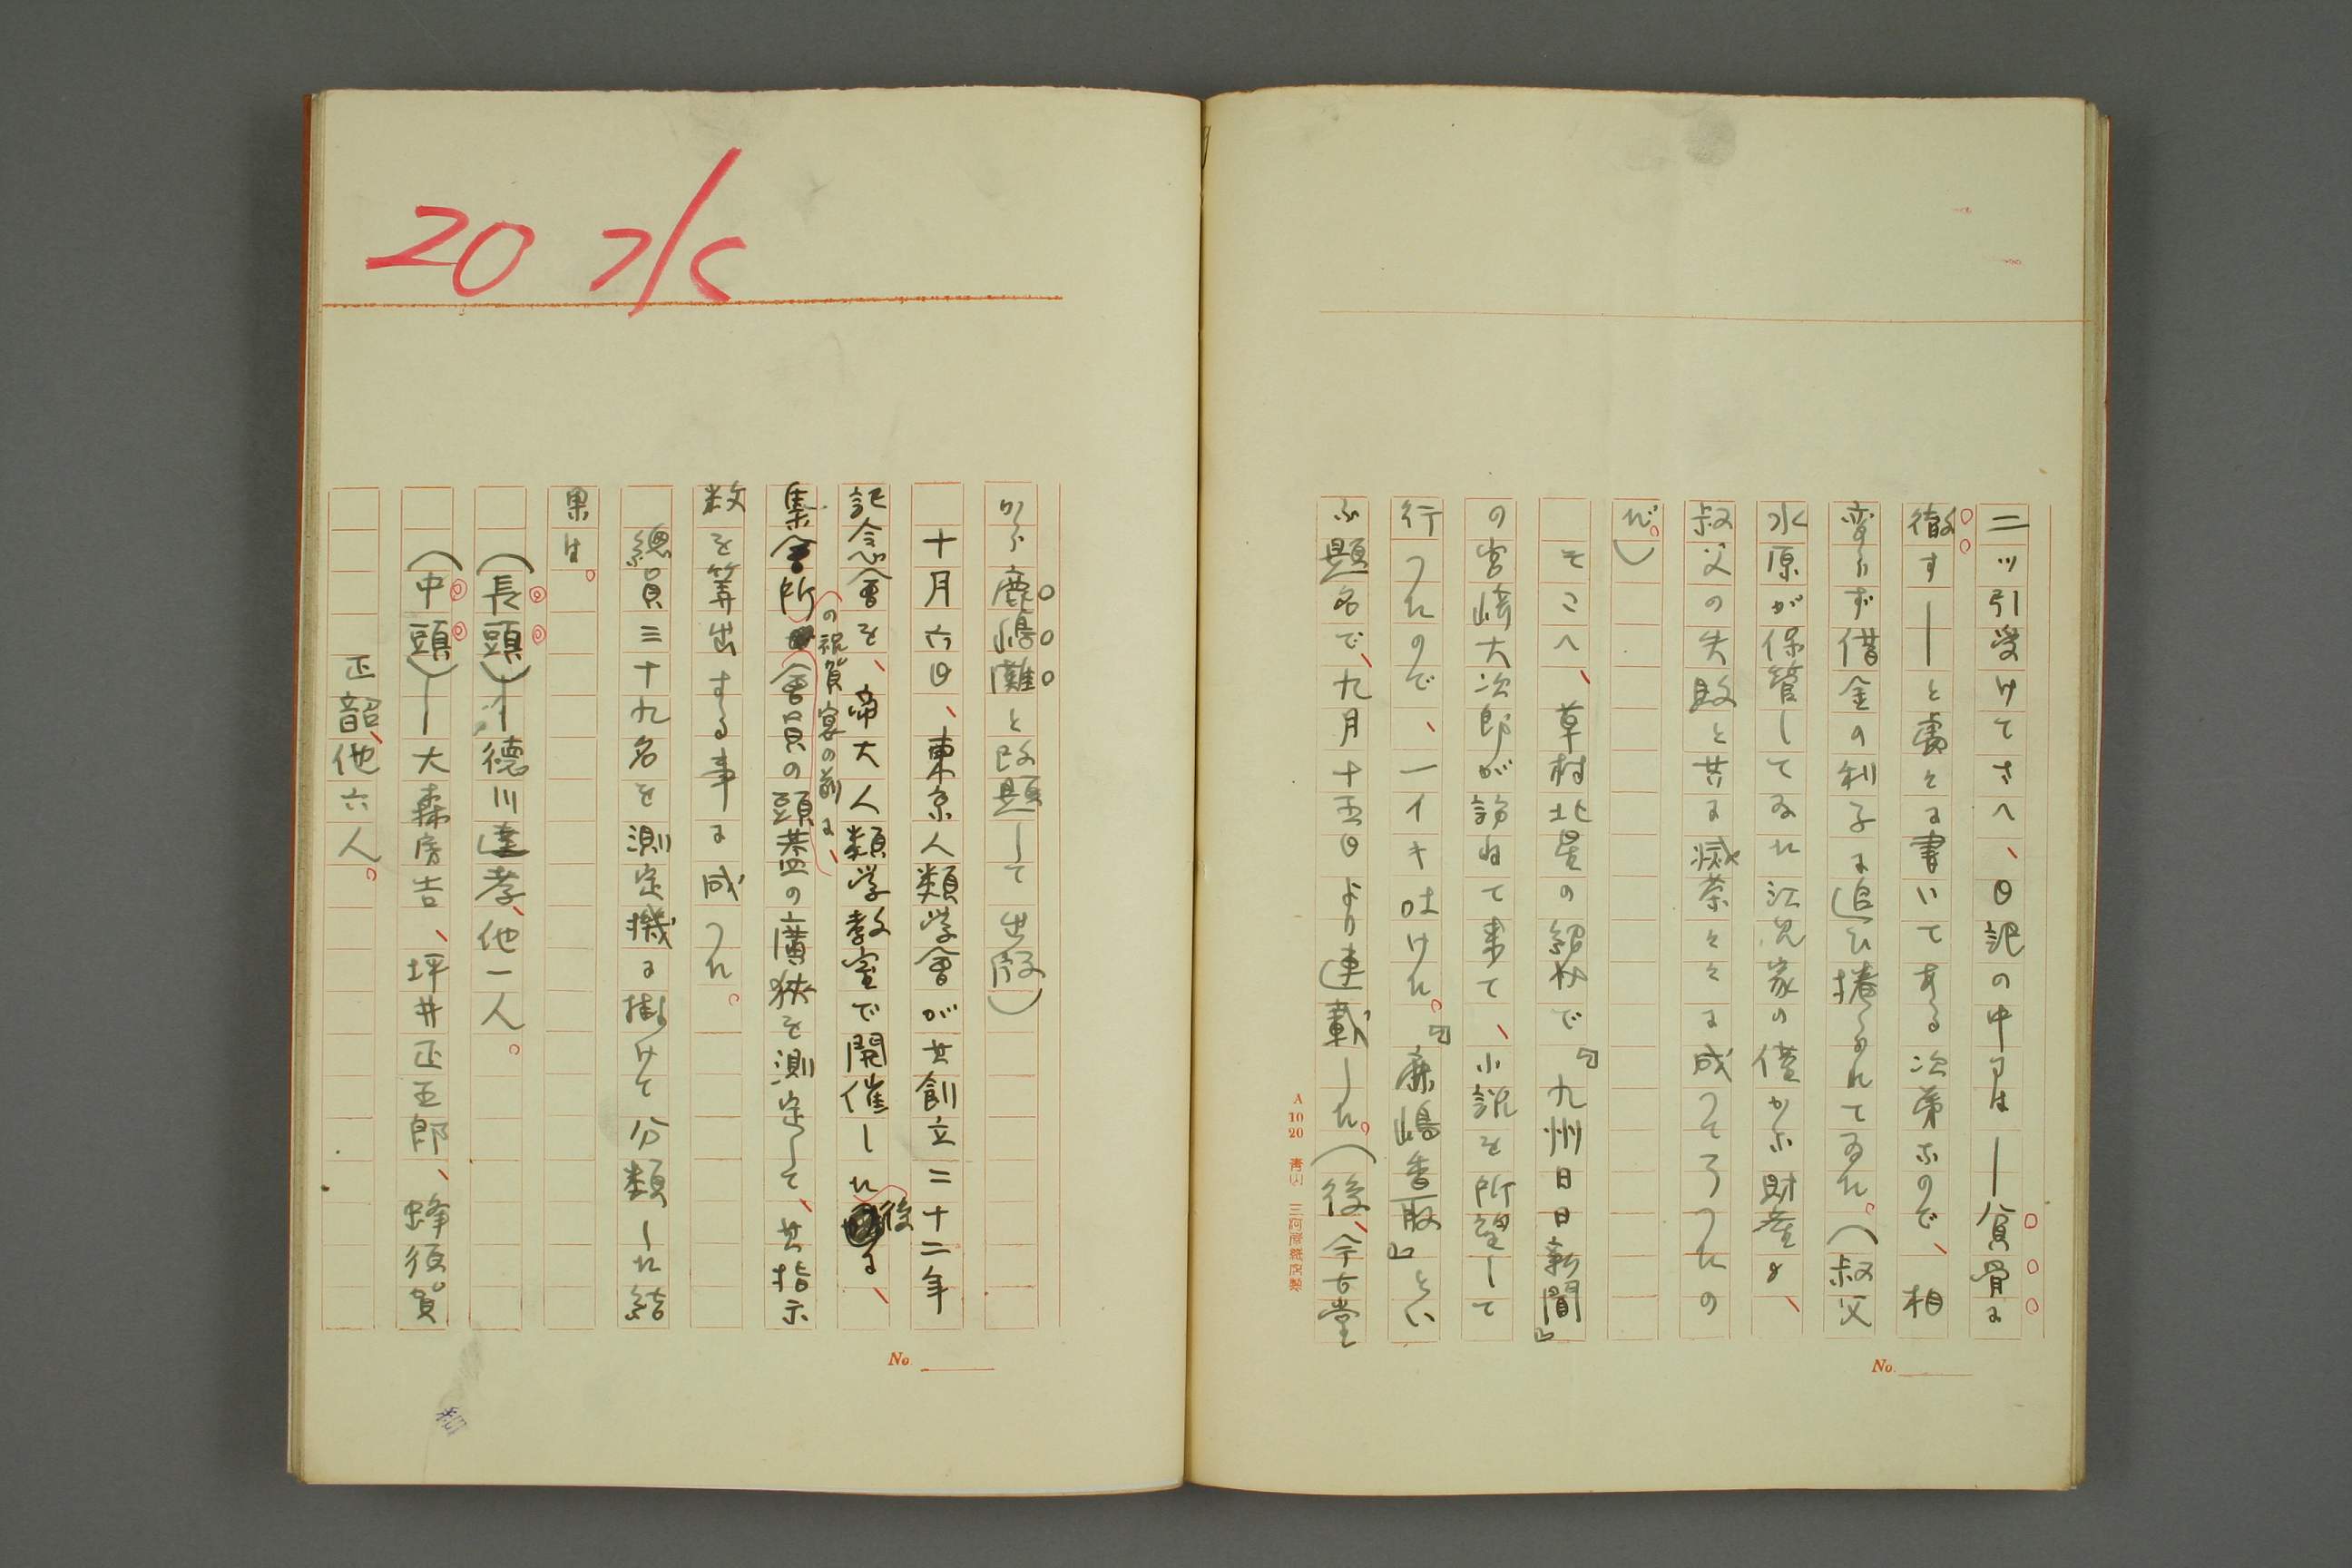 二ツ引受けてさへ、日記の中には—貧骨に
徹す—と處々に書いてある次第なので、相
変らず借金の利子に追ひ捲くられてゐた。(叔父
水原が保管してゐた江見家の僅かな財産も、
叔父の失敗と共に滅茶々々に成つて了つたの
だ。)
そこへ、草村北星の紹介で『九州日日新聞』
の宮崎大次郎が訪ねて来て、小説を所望して
行つたので、一イキ吐けた。『鹿嶋香取』とい
ふ題名で、九月十五日より連載した。(後、今古堂
A 10 20
No.
20 7/5
から鹿嶋灘と改題して出版)
十月六日、東京人類学會が其創立二十二年
記念會を、帝大人類学教室で開催した後に、
集會所の祝賀宴の前に、會員の頭蓋の廣狭を測定して、其指示
数を算出する事に成つた。
總員三十九名を測定機に掛けて分類した結
果は。
(長頭)—徳川達孝、他一人。
(中頭)—大森房吉、坪井正五郎、蜂須賀
正韶、他六人。
No.